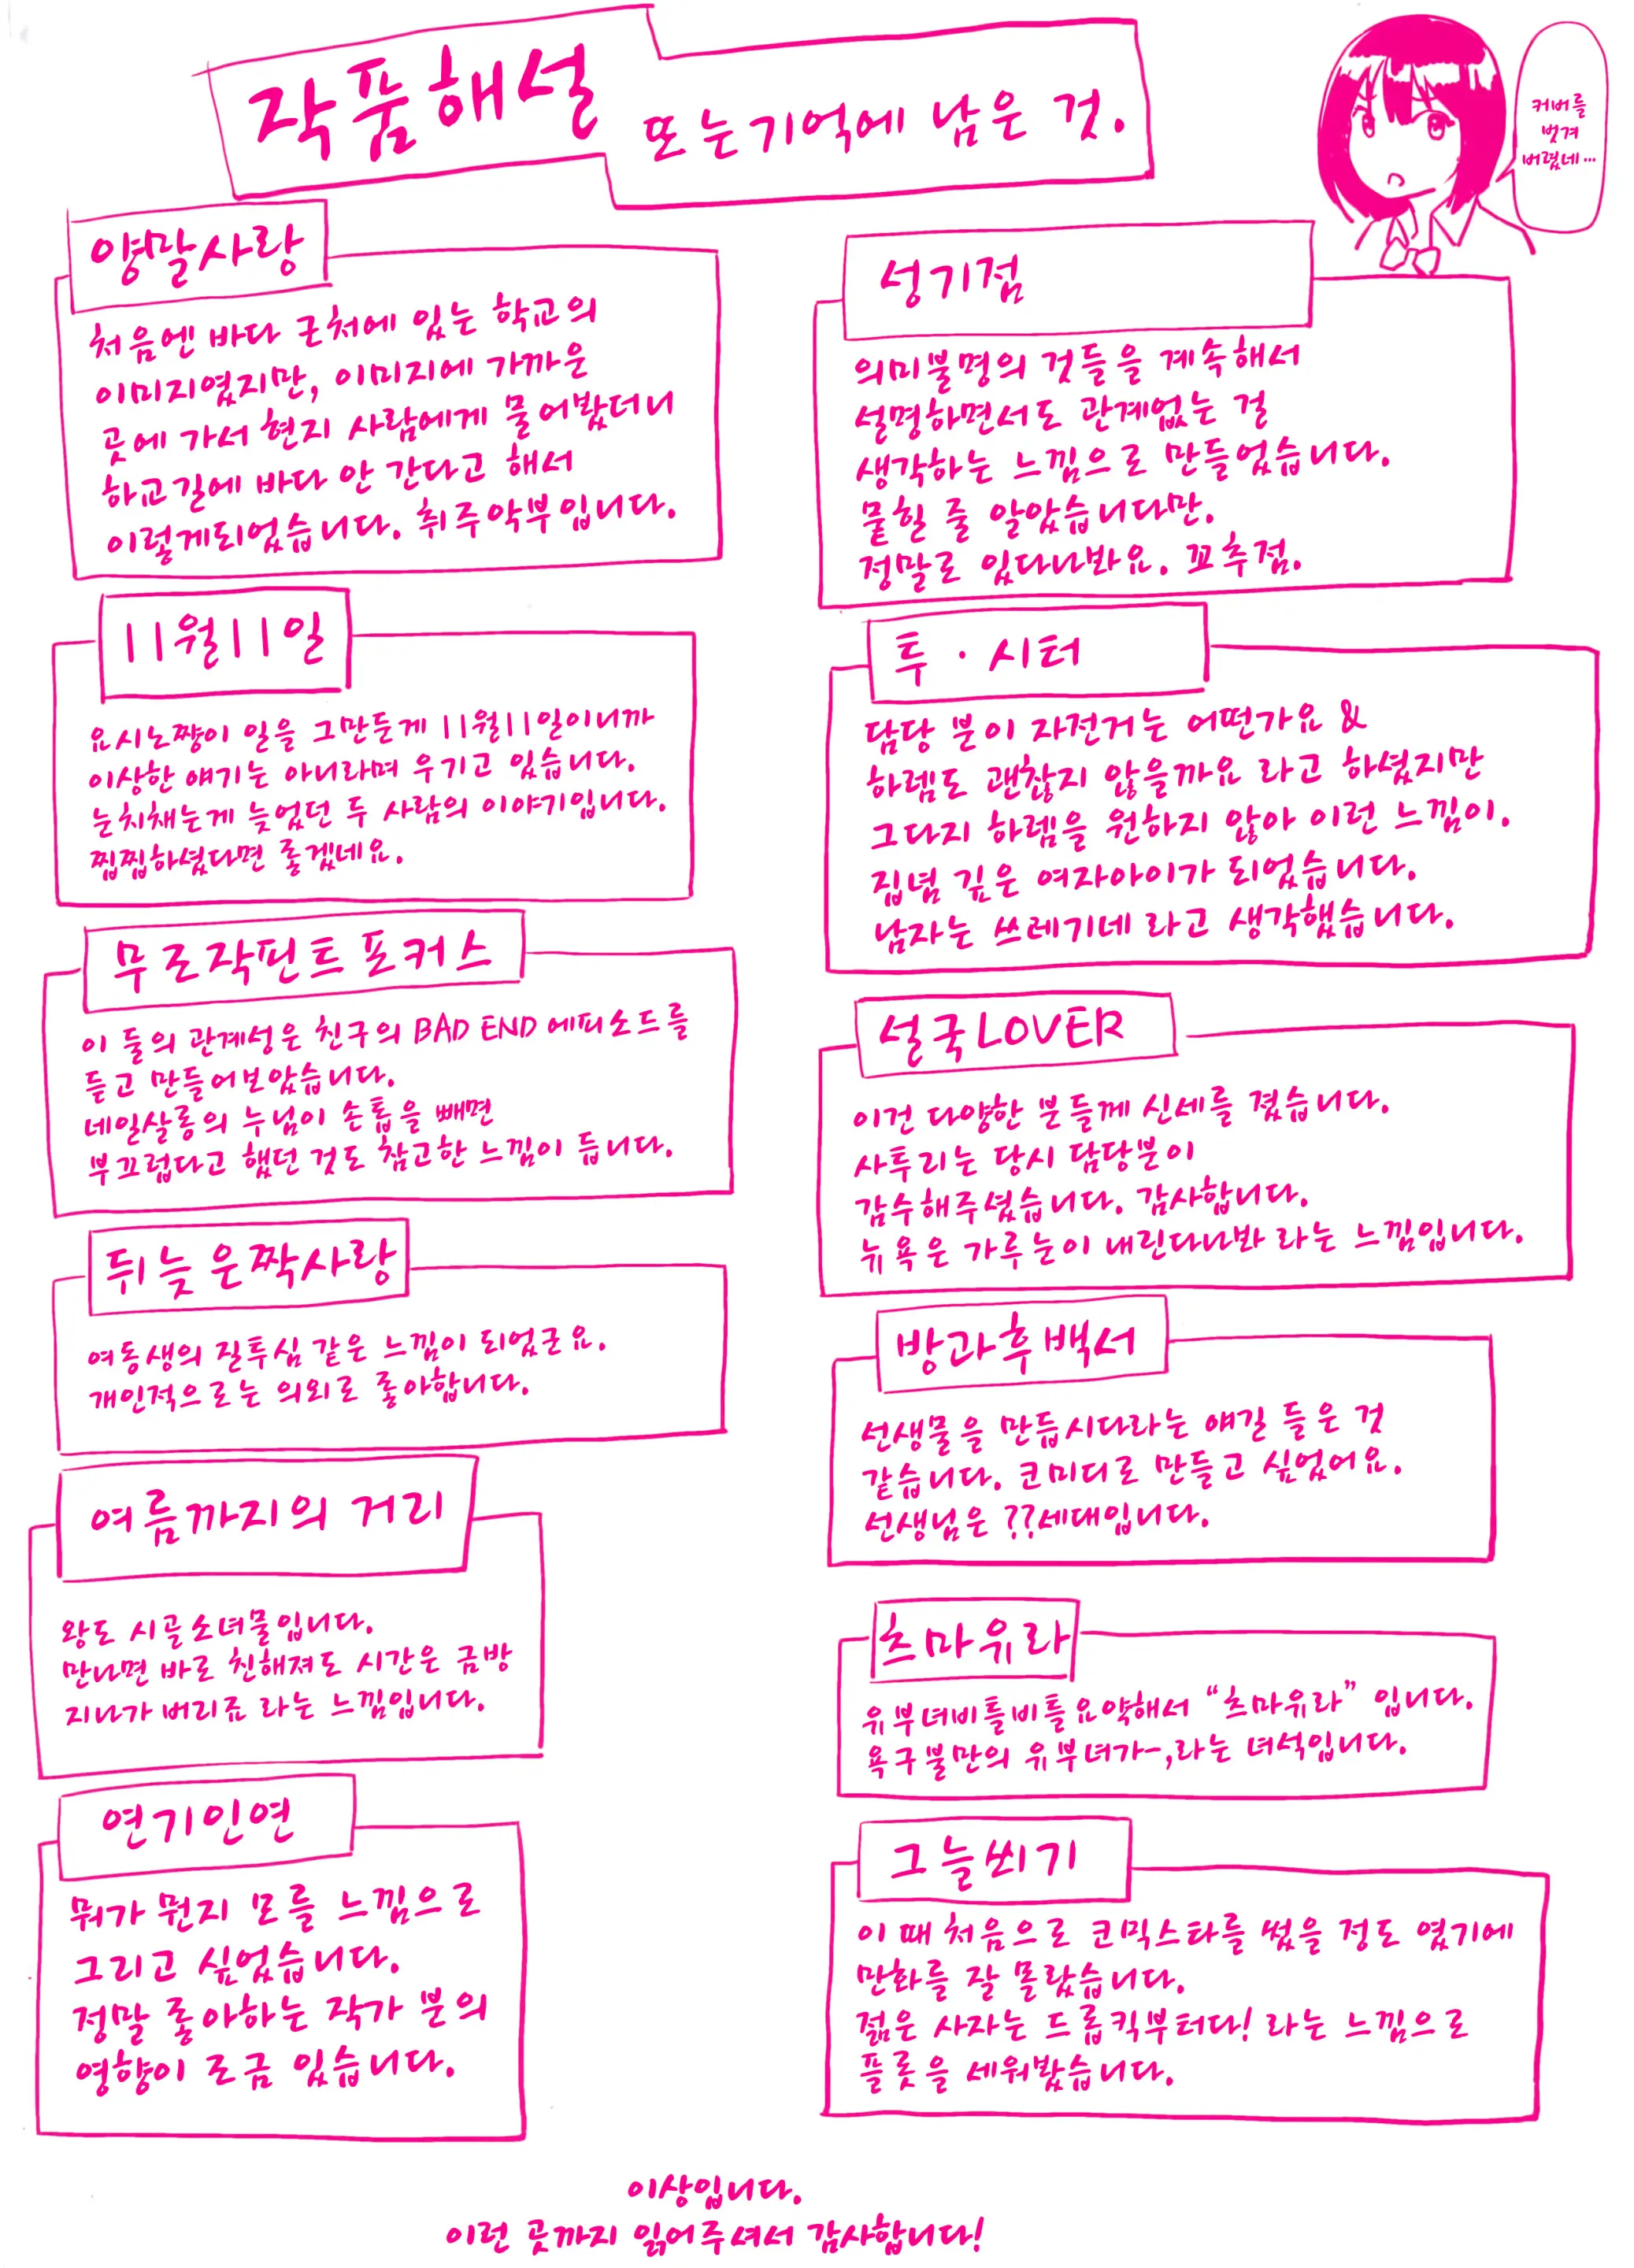 작품해설
또는기억에 남은 것.
커버를
벗겨
버렸네…
양말사랑
처음엔 바다 근처에 있는 학교의
이미지였지만, 이미지에 가까운
곳에 가서 현지 사람에게 물어봤더니
하교길에 바다 안 간다고 해서
이렇게되었습니다. 취주악부입니다.
11월11일
요시노쨩이 일을 그만둔게 11월11일이니까
이상한 얘기는 아니라며 우기고 있습니다.
눈치채는게 늦었던 두 사람의 이야기입니다.
찝찝하셨다면 좋겠네요.
무로작핀트포커스
이 둘의 관계성은 친구의 BAD END 에피소드를
듣고 만들어보았습니다.
네일살롱의 누님이 손톱을 빼면
부끄럽다고 했던 것도 참고한 느낌이 듭니다.
뒤늦은짝사랑
여동생의 질투심 같은 느낌이 되었군요.
개인적으로는 의외로 좋아합니다.
여름까지의 거리
왕도 시골소녀물입니다.
만나면 바로 친해져도 시간은 금방
지나가 버리죠 라는 느낌입니다.
연기인연
뭐가 뭔지 모를 느낌으로
그리고 싶었습니다.
정말 좋아하는 작가 분의
영향이 조금 있습니다.
성기점
의미불명의 것들을 계속해서
설명하면서도 관계없는 걸
생각하는 느낌으로 만들었습니다.
묻힐 줄 알았습니다만.
정말로 있다나봐요. 꼬추점.
투·시터
담당 분이 자전거는 어떤가요 &
하렘도 괜찮지 않을까요 라고 하셨지만
그다지 하렘을 원하지 않아 이런 느낌이.
집념 깊은 여자아이가 되었습니다.
남자는 쓰레기네 라고 생각했습니다.
설국LOVER
이건 다양한 분들께 신세를 졌습니다.
사투리는 당시 담당분이
감수해주셨습니다. 감사합니다.
뉴욕은 가루눈이 내린다나봐 라는 느낌입니다.
방과후백서
선생물을 만듭시다라는 얘길 들은 것
같습니다. 코미디로 만들고 싶었어요.
선생님은 ??세대입니다.
츠마유라
유부녀비틀비틀요약해서 “츠마유라” 입니다.
욕구불만의 유부녀가-,라는 녀석입니다.
그늘쐬기
이 때 처음으로 코믹스타를 썼을 정도 였기에
만화를 잘 몰랐습니다.
젊은 사자는 드롭킥부터다! 라는 느낌으로
플롯을 세워봤습니다.
이상입니다.
이런 곳까지 읽어주셔서 감사합니다!